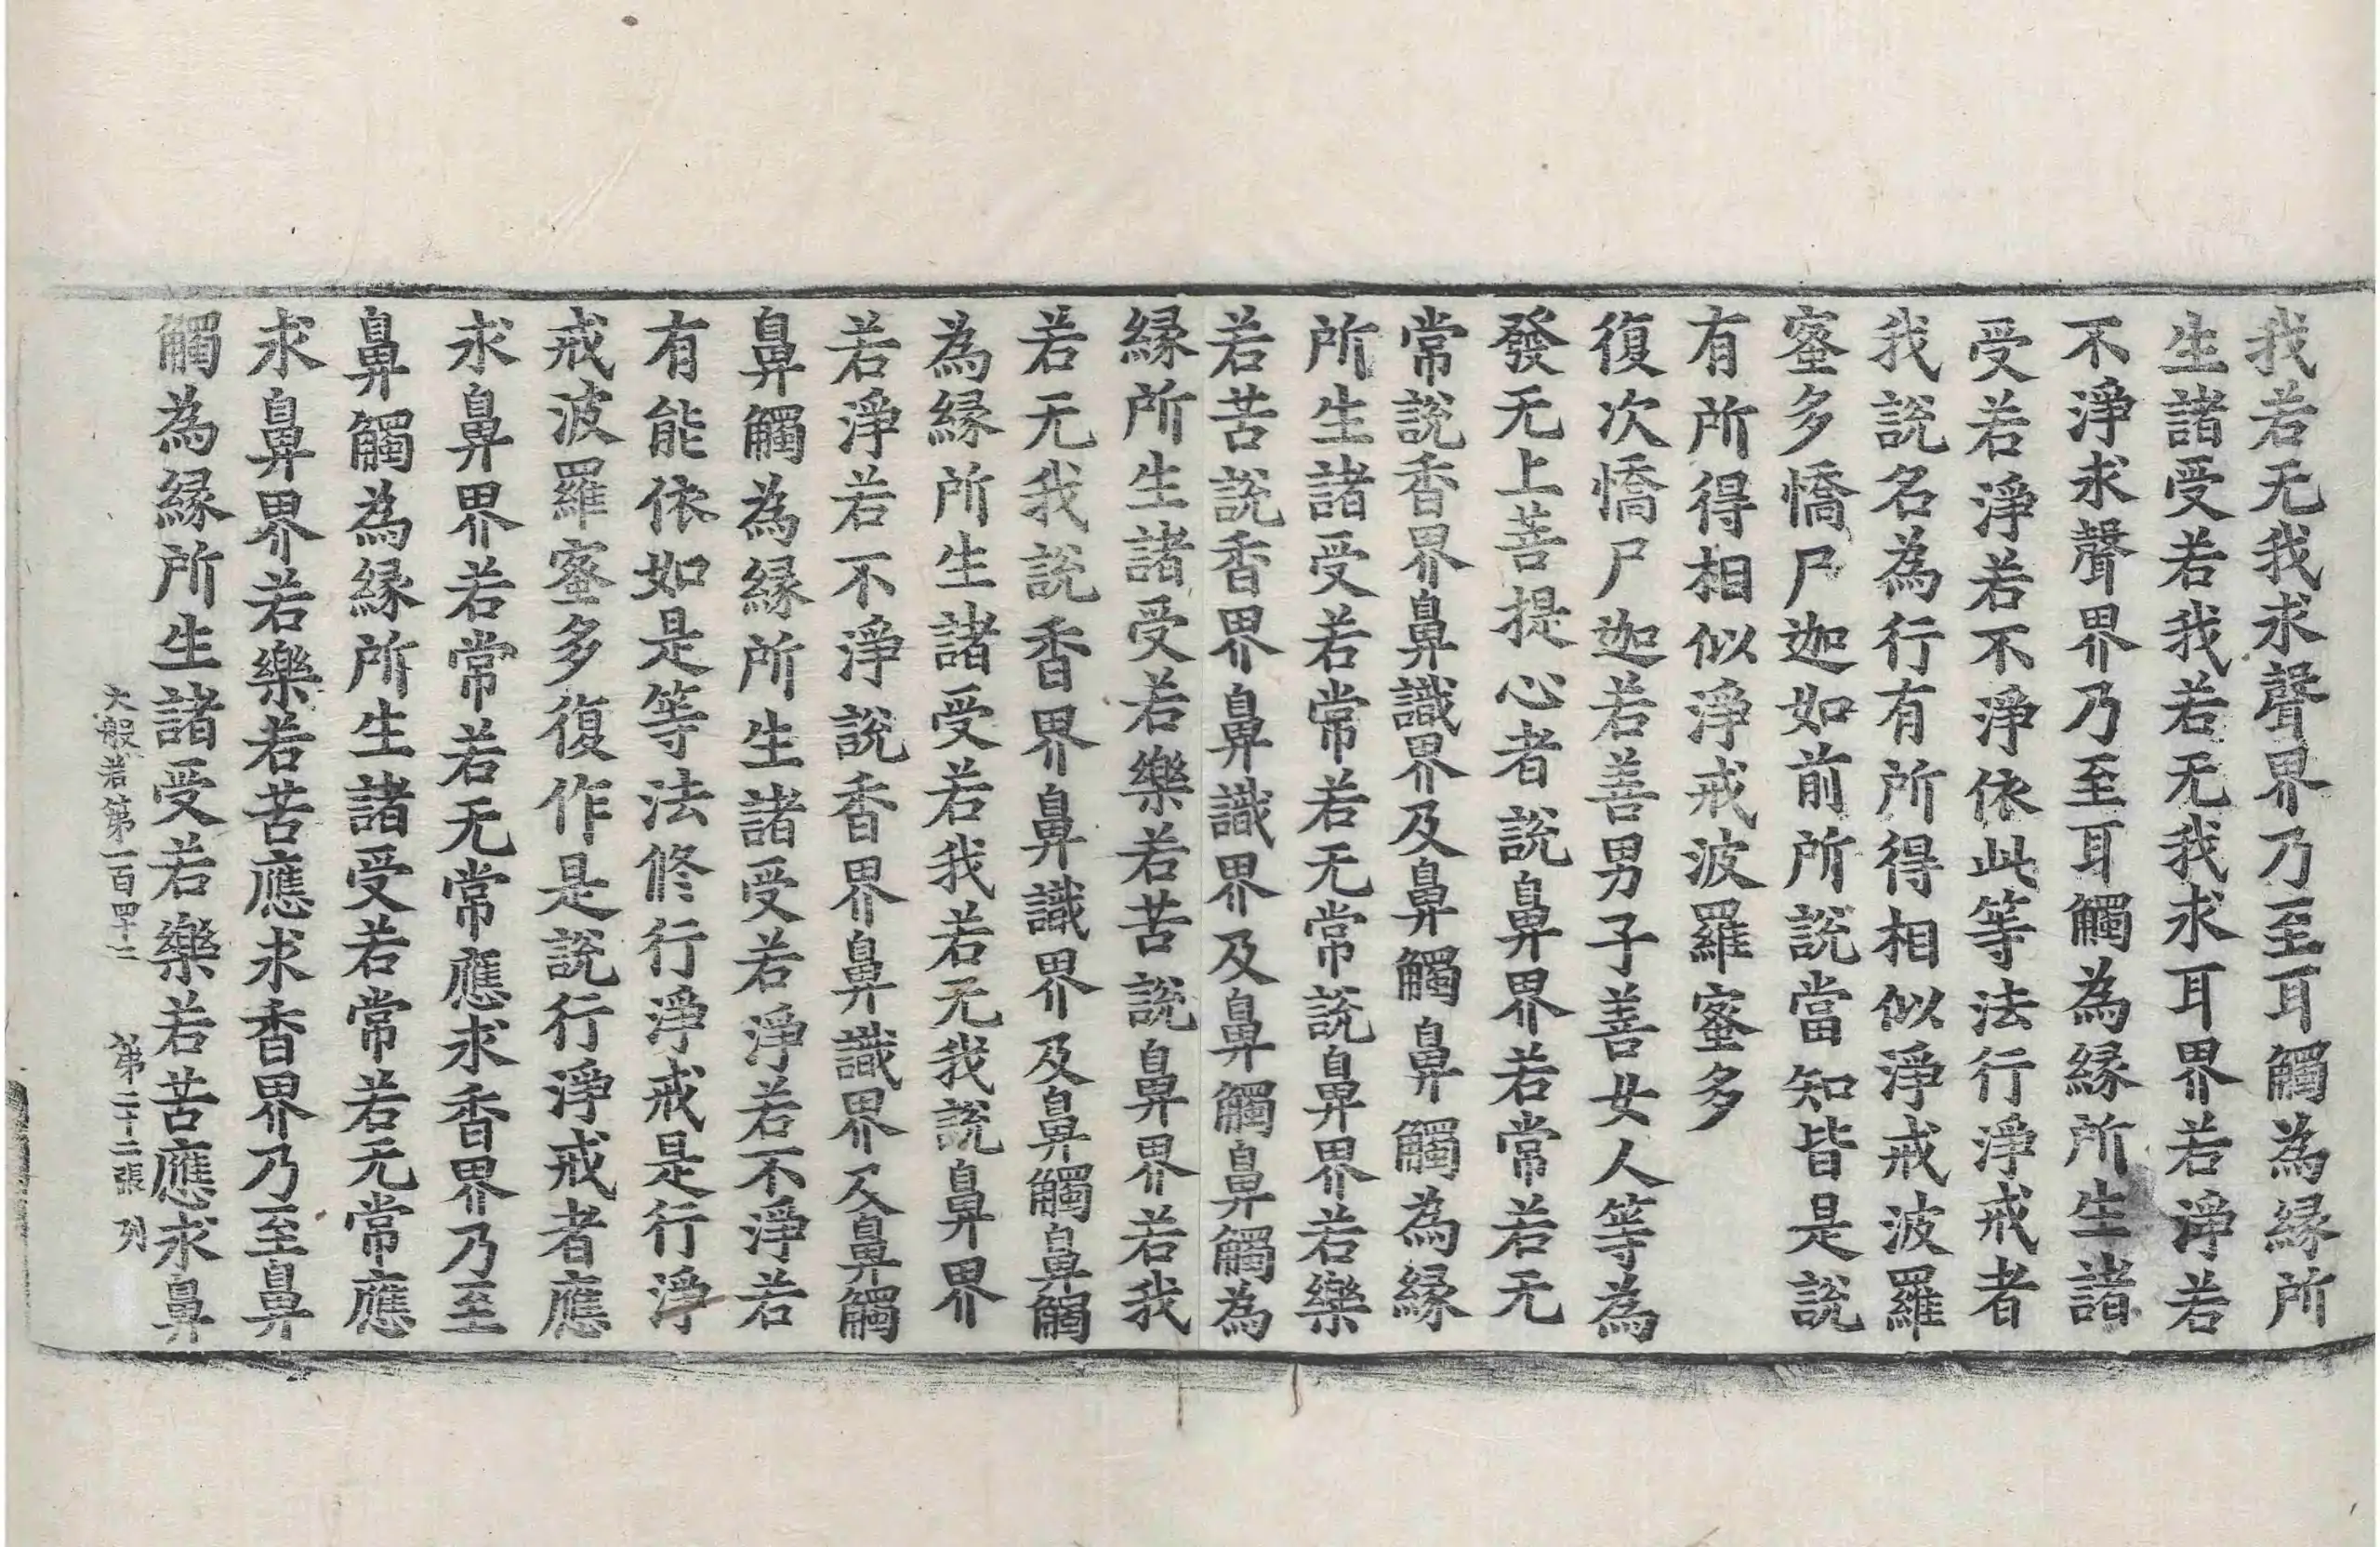 我若无我求聲界乃至耳觸為縁所
生諸受若我若无我求耳界若淨若
不淨求聲界乃至耳觸為縁所生諸
受若淨若不淨依此等法行淨戒者
我說名為行有所得相似淨戒波羅
蜜多憍尸迦如前所說當知皆是說
有所得相似淨戒波羅蜜多
復次憍尸迦若善男子善女人等為
發无上菩提心者說鼻界若常若无
常說香界鼻識界及鼻觸鼻觸為縁
所生諸受若常若无常說鼻界若樂
若苦說香界鼻識界及鼻觸鼻觸為
縁所生諸受若樂若苦說鼻界若我
若无我說香界鼻識界及鼻觸鼻觸
為縁所生諸受若我若无我說鼻界
若淨若不淨說香界鼻識界及鼻觸
鼻觸為縁所生諸受若淨若不淨若
有能依如是等法修行淨戒是行淨
戒波羅蜜多復作是說行淨戒者應
求鼻界若常若无常應求香界乃至
鼻觸為縁所生諸受若常若无常應
求鼻界若樂若苦應求香界乃至鼻
觸為縁所生諸受若樂若苦應求鼻
大般若第一百四十二 第二十二張 列